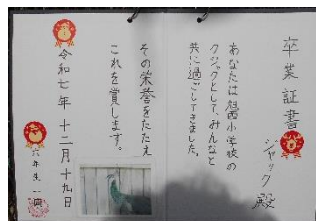 卒業証書
ジャック 殿
あなたは小学校の
クジャクとして、みんなと
共に過ごしてきました。
その栄誉をたたえ
これを賞します。
令和七年 十二月 十九日
六年生一同